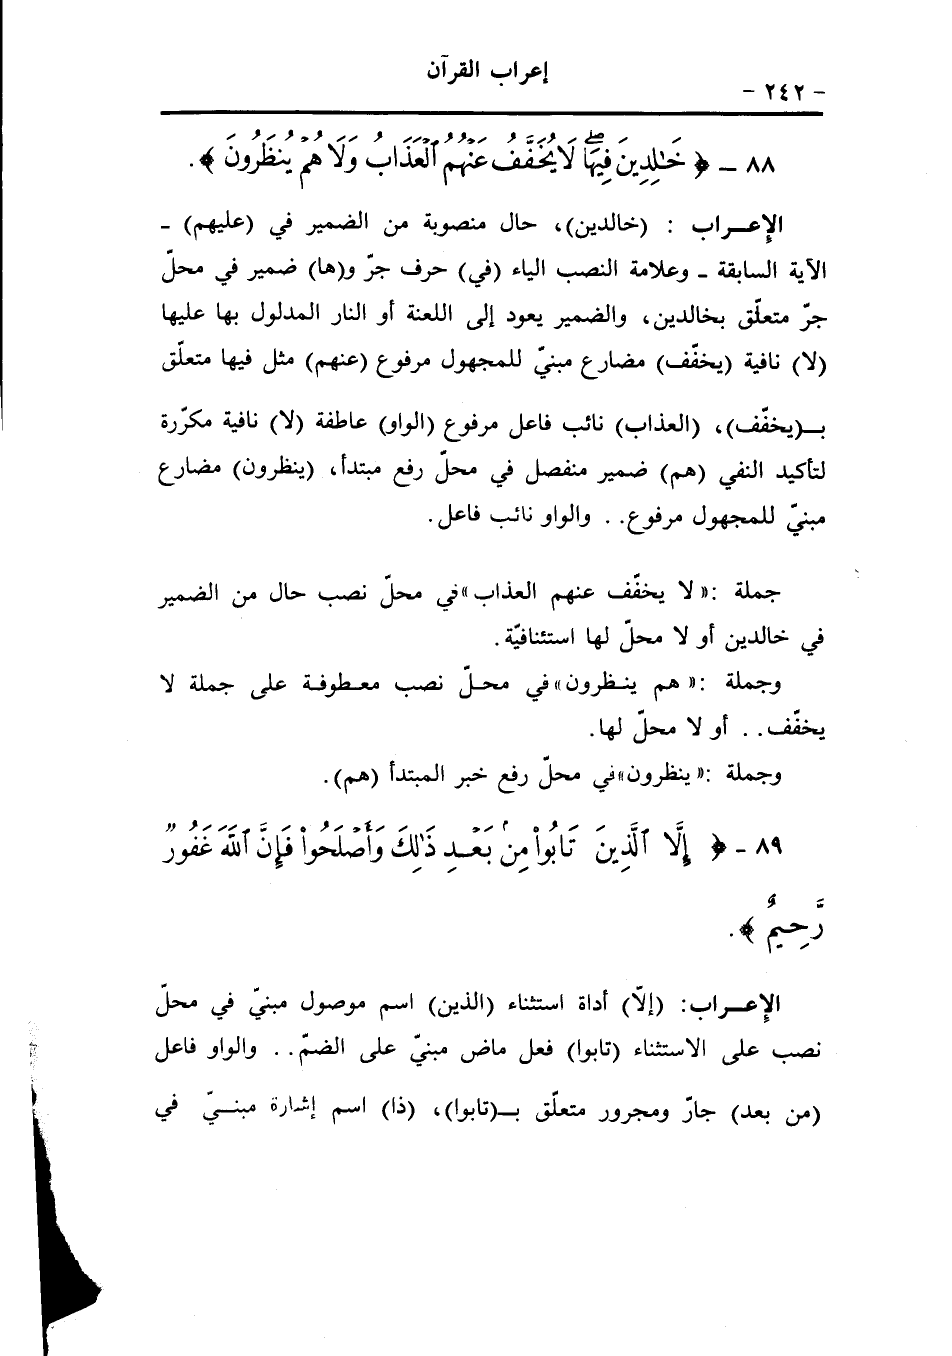 إعراب القرآن
- ٢٤٢ -
٨٨ ـ ﴿ خَٰلِدِينَ فِيهَاۖ لَا يُخَفَّفُ عَنْهُمُ ٱلْعَذَابُ وَلَا هُمْ يُنظَرُونَ ﴾.
الإعـراب : (خالدين)، حال منصوبة من الضمير في (عليهم) ـ
الآية السابقة ـ وعلامة النصب الياء (في) حرف جرّ و(ها) ضمير في محلّ
جرّ متعلّق بخالدين، والضمير يعود إلى اللعنة أو النار المدلول بها عليها
(لا) نافية (يخفّف) مضارع مبنيّ للمجهول مرفوع (عنهم) مثل فيها متعلّق
بـ(يخفّف)، (العذاب) نائب فاعل مرفوع (الواو) عاطفة (لا) نافية مكرّرة
لتأكيد النفي (هم) ضمير منفصل في محلّ رفع مبتدأ، (ينظرون) مضارع
مبنيّ للمجهول مرفوع.. والواو نائب فاعل.
جملة :«لا يخفّف عنهم العذاب»في محلّ نصب حال من الضمير
في خالدين أو لا محلّ لها استئنافيّة.
وجملة :«هم ينـظرون»في محـلّ نصب معـطوفـة على جملة لا
يخفّف.. أو لا محلّ لها.
وجملة :«ينظرون»في محلّ رفع خبر المبتدأ (هم).
٨٩ - ﴿ إِلَّا ٱلَّذِينَ تَابُوا۟ مِنۢ بَعْـدِ ذَٰلِكَ وَأَصْلَحُوا۟ فَإِنَّ ٱللَّهَ غَفُورٌ
رَّحِيمٌ ﴾.
الإعـراب: (إلّا) أداة استثناء (الذين) اسم موصول مبنيّ في محلّ
نصب على الاستثناء (تابوا) فعل ماض مبنيّ على الضمّ.. والواو فاعل
(من بعد) جارّ ومجرور متعلّق بـ(تابوا)، (ذا) اسم إشارة مبنـيّ في